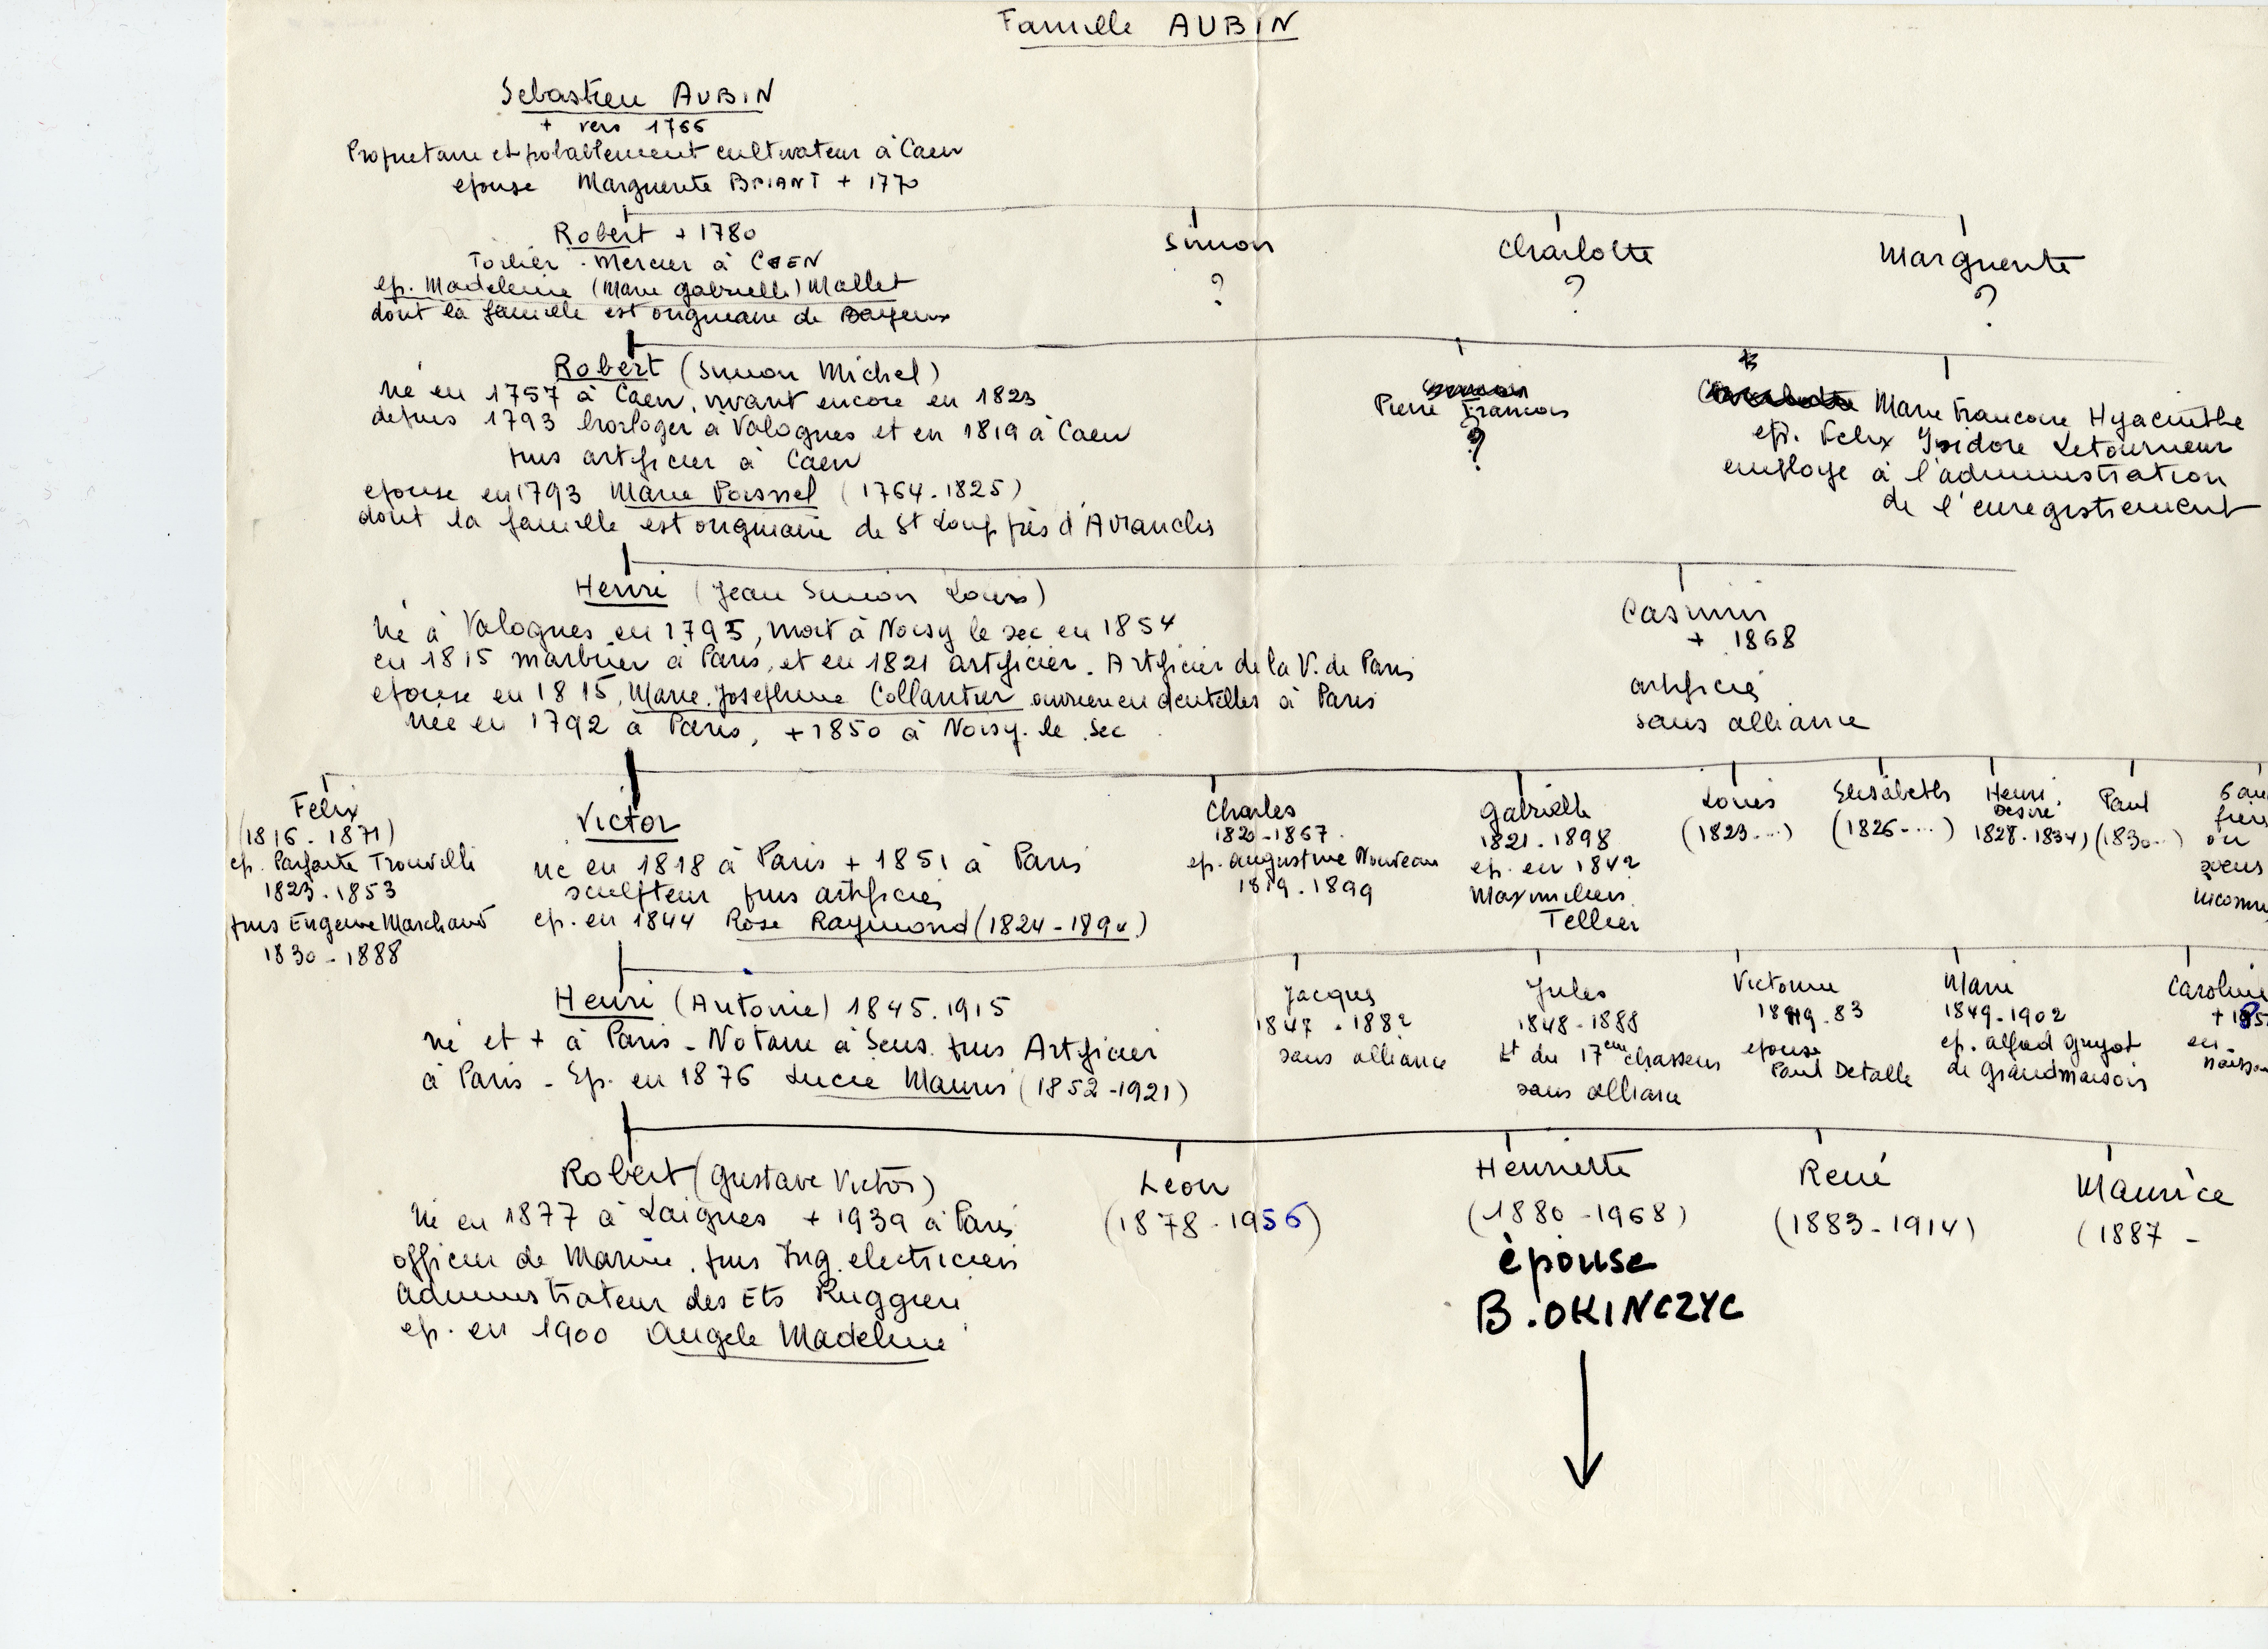 Famille AUBIN
Sebastien AUBIN
+ vers 1766
Proprietaire et probablement cultivateur à Caen
epouse Marguerite BRIANT + 1770
Robert + 1780
Toilier - Mercier à CAEN
ep. Madeleine (Marie Gabrielle) Mallet
dont la famille est originaire de Bayeux
Simon
?
Charlotte
?
Marguerite
?
Robert (Simon Michel)
né en 1757 à Caen, vivant encore en 1823
depuis 1793 horloger à Valognes et en 1819 à Caen
puis artificier à Caen
epouse en 1793 Marie Poisnel (1764-1825)
dont la famille est originaire de St Loup près d'Avranches
Pierre Francois
?
Marie Francoise Hyacinthe
ep. Felix Isidore Letourneur
employe à l'administration
de l'enregistrement
Henri (Jean Simon Louis)
Né à Valognes en 1795, mort à Noisy le sec en 1854
en 1815 marbrier à Paris, et en 1821 artificier. Artificier de la V. de Paris
epouse en 1815, Marie Josephine Collantier ouvriere en dentelles à Paris
née en 1792 à Paris, +1850 à Noisy-le-Sec
Casimir
+ 1868
artificier
sans alliance
Felix
(1816-1871)
ep. Parfaite Trouville
1823-1853
puis Eugenie Marchand
1830-1888
Victor
né en 1818 à Paris + 1851 à Paris
sculpteur puis artificier
ep. en 1844 Rose Raymond (1824-189 )
Charles
1820-1867
ep. Augustine Nouveau
1819-1899
Gabrielle
1821-1898
ep. en 1842
Maximilien
Tellier
Louis
(1823...)
Elisabeth
(1826-...)
Henri
Desiré
1828-1834)
Paul
(1830...)
6 au
freres
ou
soeurs
inconnu
Henri (Antoine) 1845.1915
né et + à Paris - Notaire à Sens puis Artificier
à Paris - Ep. en 1876 Lucie Mauris (1852-1921)
Jacques
1847-1882
sans alliance
Jules
1848-1888
Lt du 17eme chasseurs
sans alliance
Victorine
1849.83
epouse
Paul Detalle
Marie
1849-1902
ep. Alfred Guyot
de Grandmaison
Caroline
+ 185
en
naissan
Robert (Gustave Victor)
Né en 1877 à Laignes + 1939 à Paris
officier de Marine puis Ing. electricien
Administrateur des Ets Ruggieri
ep. en 1900 Angele Madeline
Léon
(1878-1956)
Henriette
(1880-1968)
épouse
B. OKINCZYC
René
(1883-1914)
Maurice
(1887 -